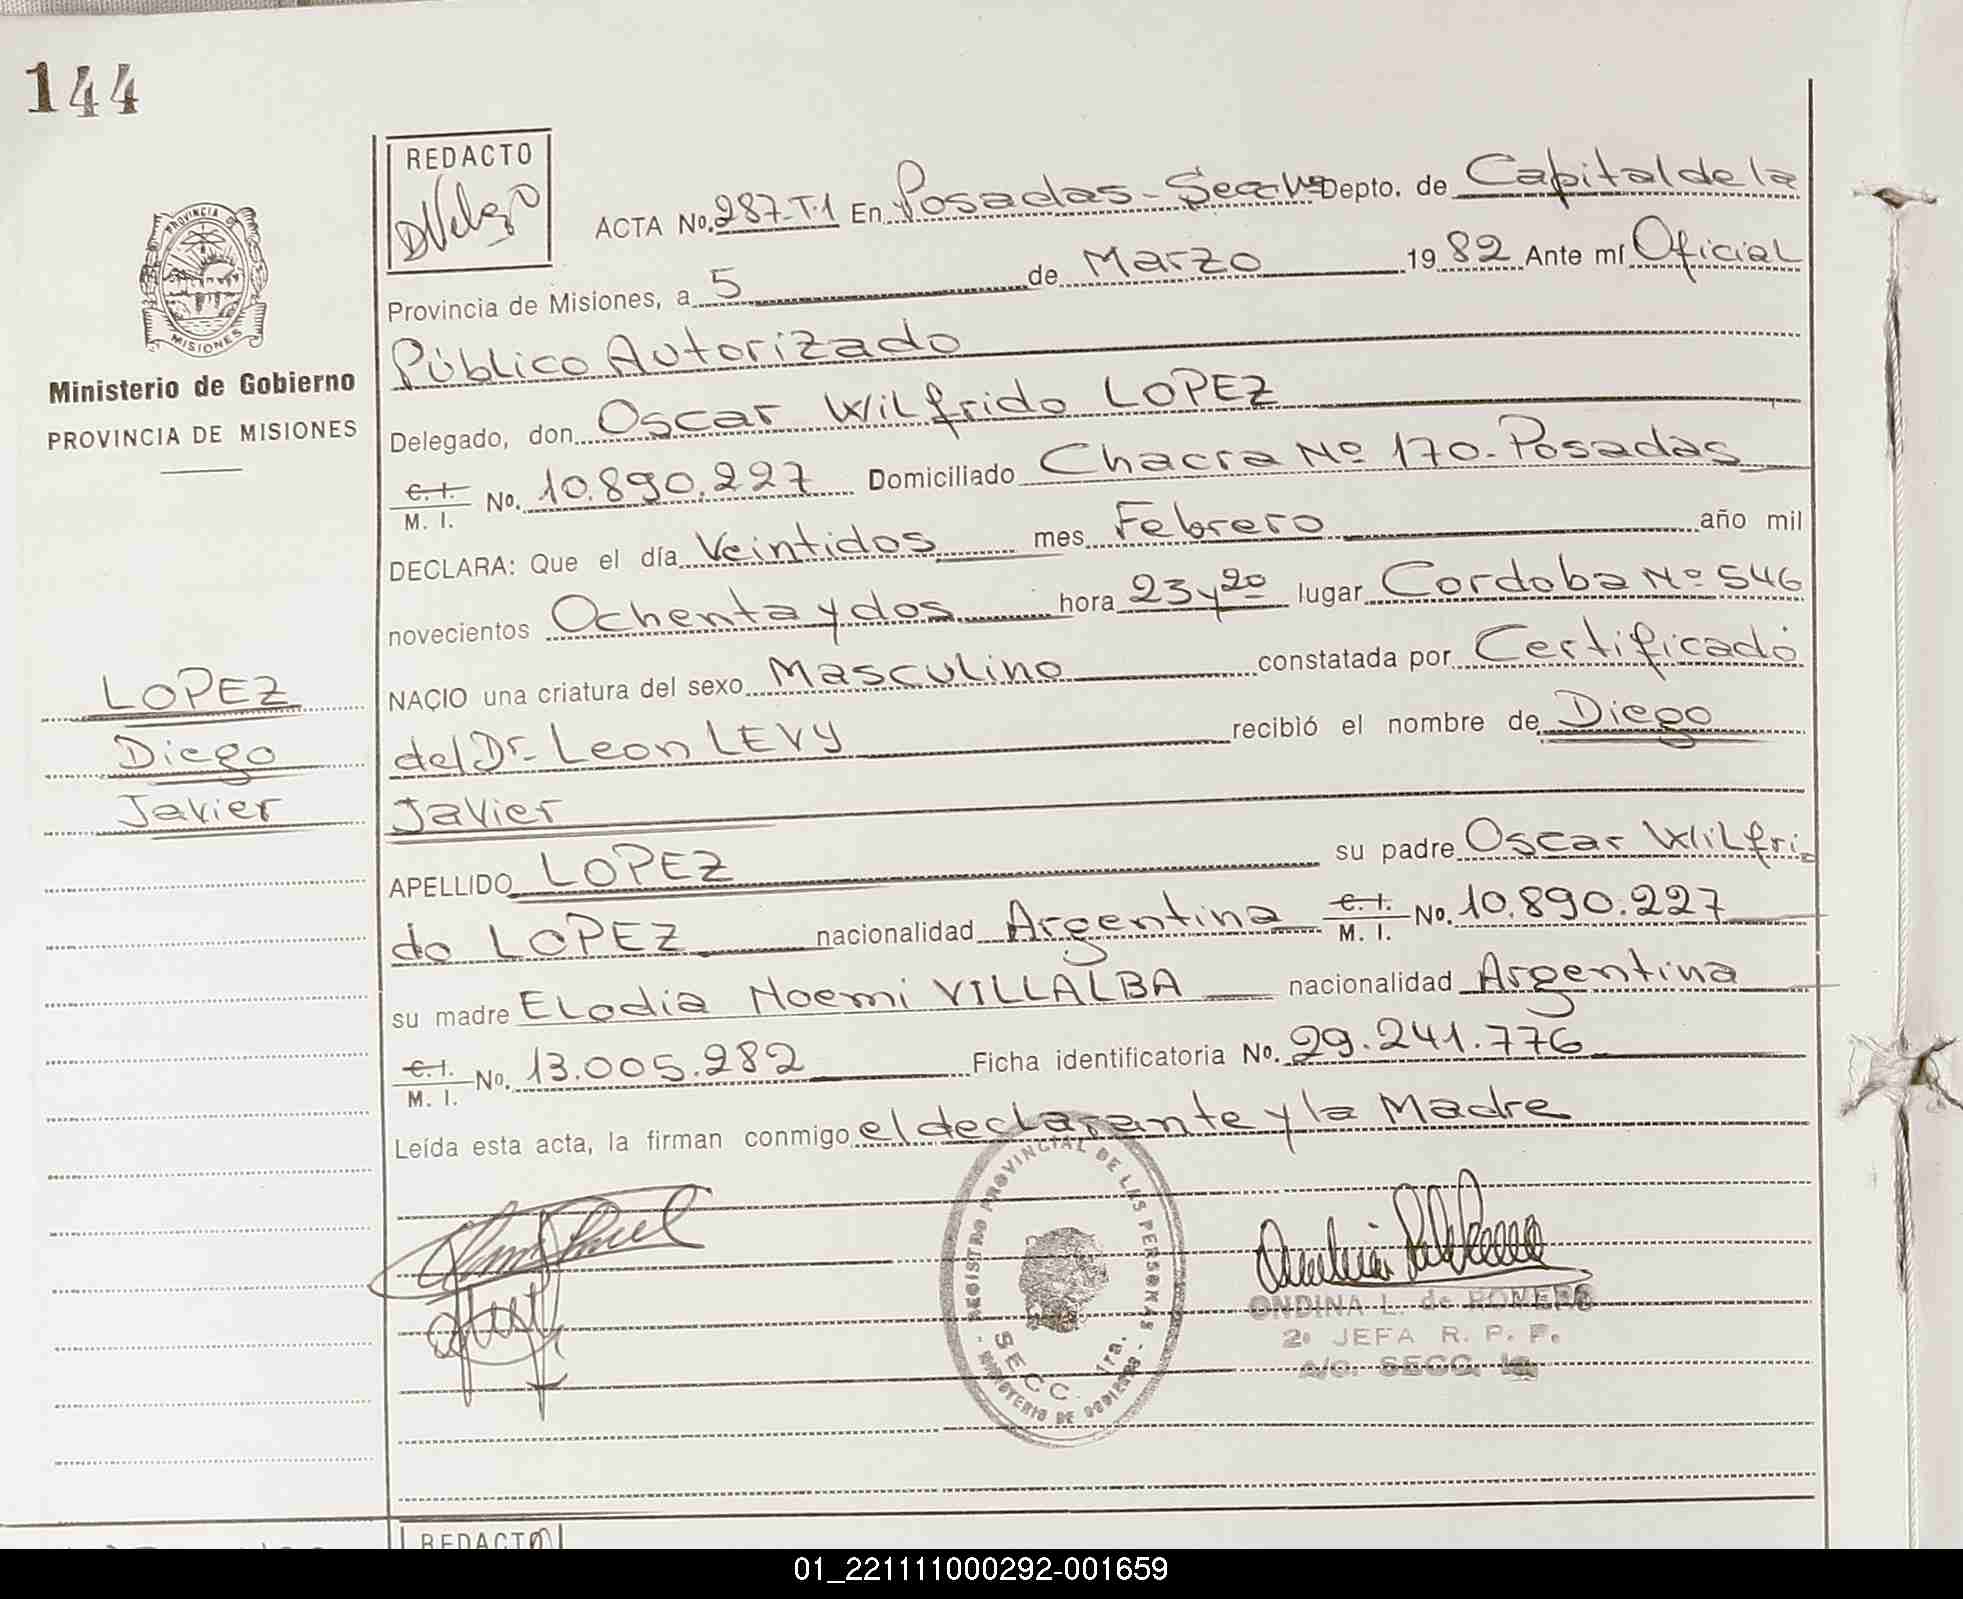 144
REDACTO
PROVINCIA DE
MISIONES
Ministerio de Gobierno
PROVINCIA DE MISIONES
LOPEZ
Diego
Javier
ACTA No. 287-T.1 En Posadas - Secc 1ra Depto. de Capital de la
Provincia de Misiones, a 5 de Marzo 1982 Ante mí Oficial
Público Autorizado
Delegado, don Oscar Wilfrido LOPEZ
C.I. M. I. No. 10.890.227 Domiciliado Chacra Nº 170 - Posadas
DECLARA: Que el día Veintidos mes Febrero año mil
novecientos Ochenta y dos hora 23 y 20 lugar Cordoba Nº 546
NACIO una criatura del sexo Masculino constatada por Certificado
del Dr. Leon LEVY recibió el nombre de Diego
Javier
APELLIDO LOPEZ su padre Oscar Wilfri-
do LOPEZ nacionalidad Argentina C.I. M. I. No. 10.890.227
su madre Elodia Noemi VILLALBA nacionalidad Argentina
C.I. M. I. No. 13.005.282 Ficha identificatoria No. 29.241.776
Leída esta acta, la firman conmigo el declarante y la Madre
REGISTRO PROVINCIAL DE LAS PERSONAS
SECC. 1ra.
MINISTERIO DE GOBIERNO
ONDINA L. de ROMERO
2º JEFA R. P. P.
A/C. SECC. 1a.
REDACTO
01_221111000292-001659